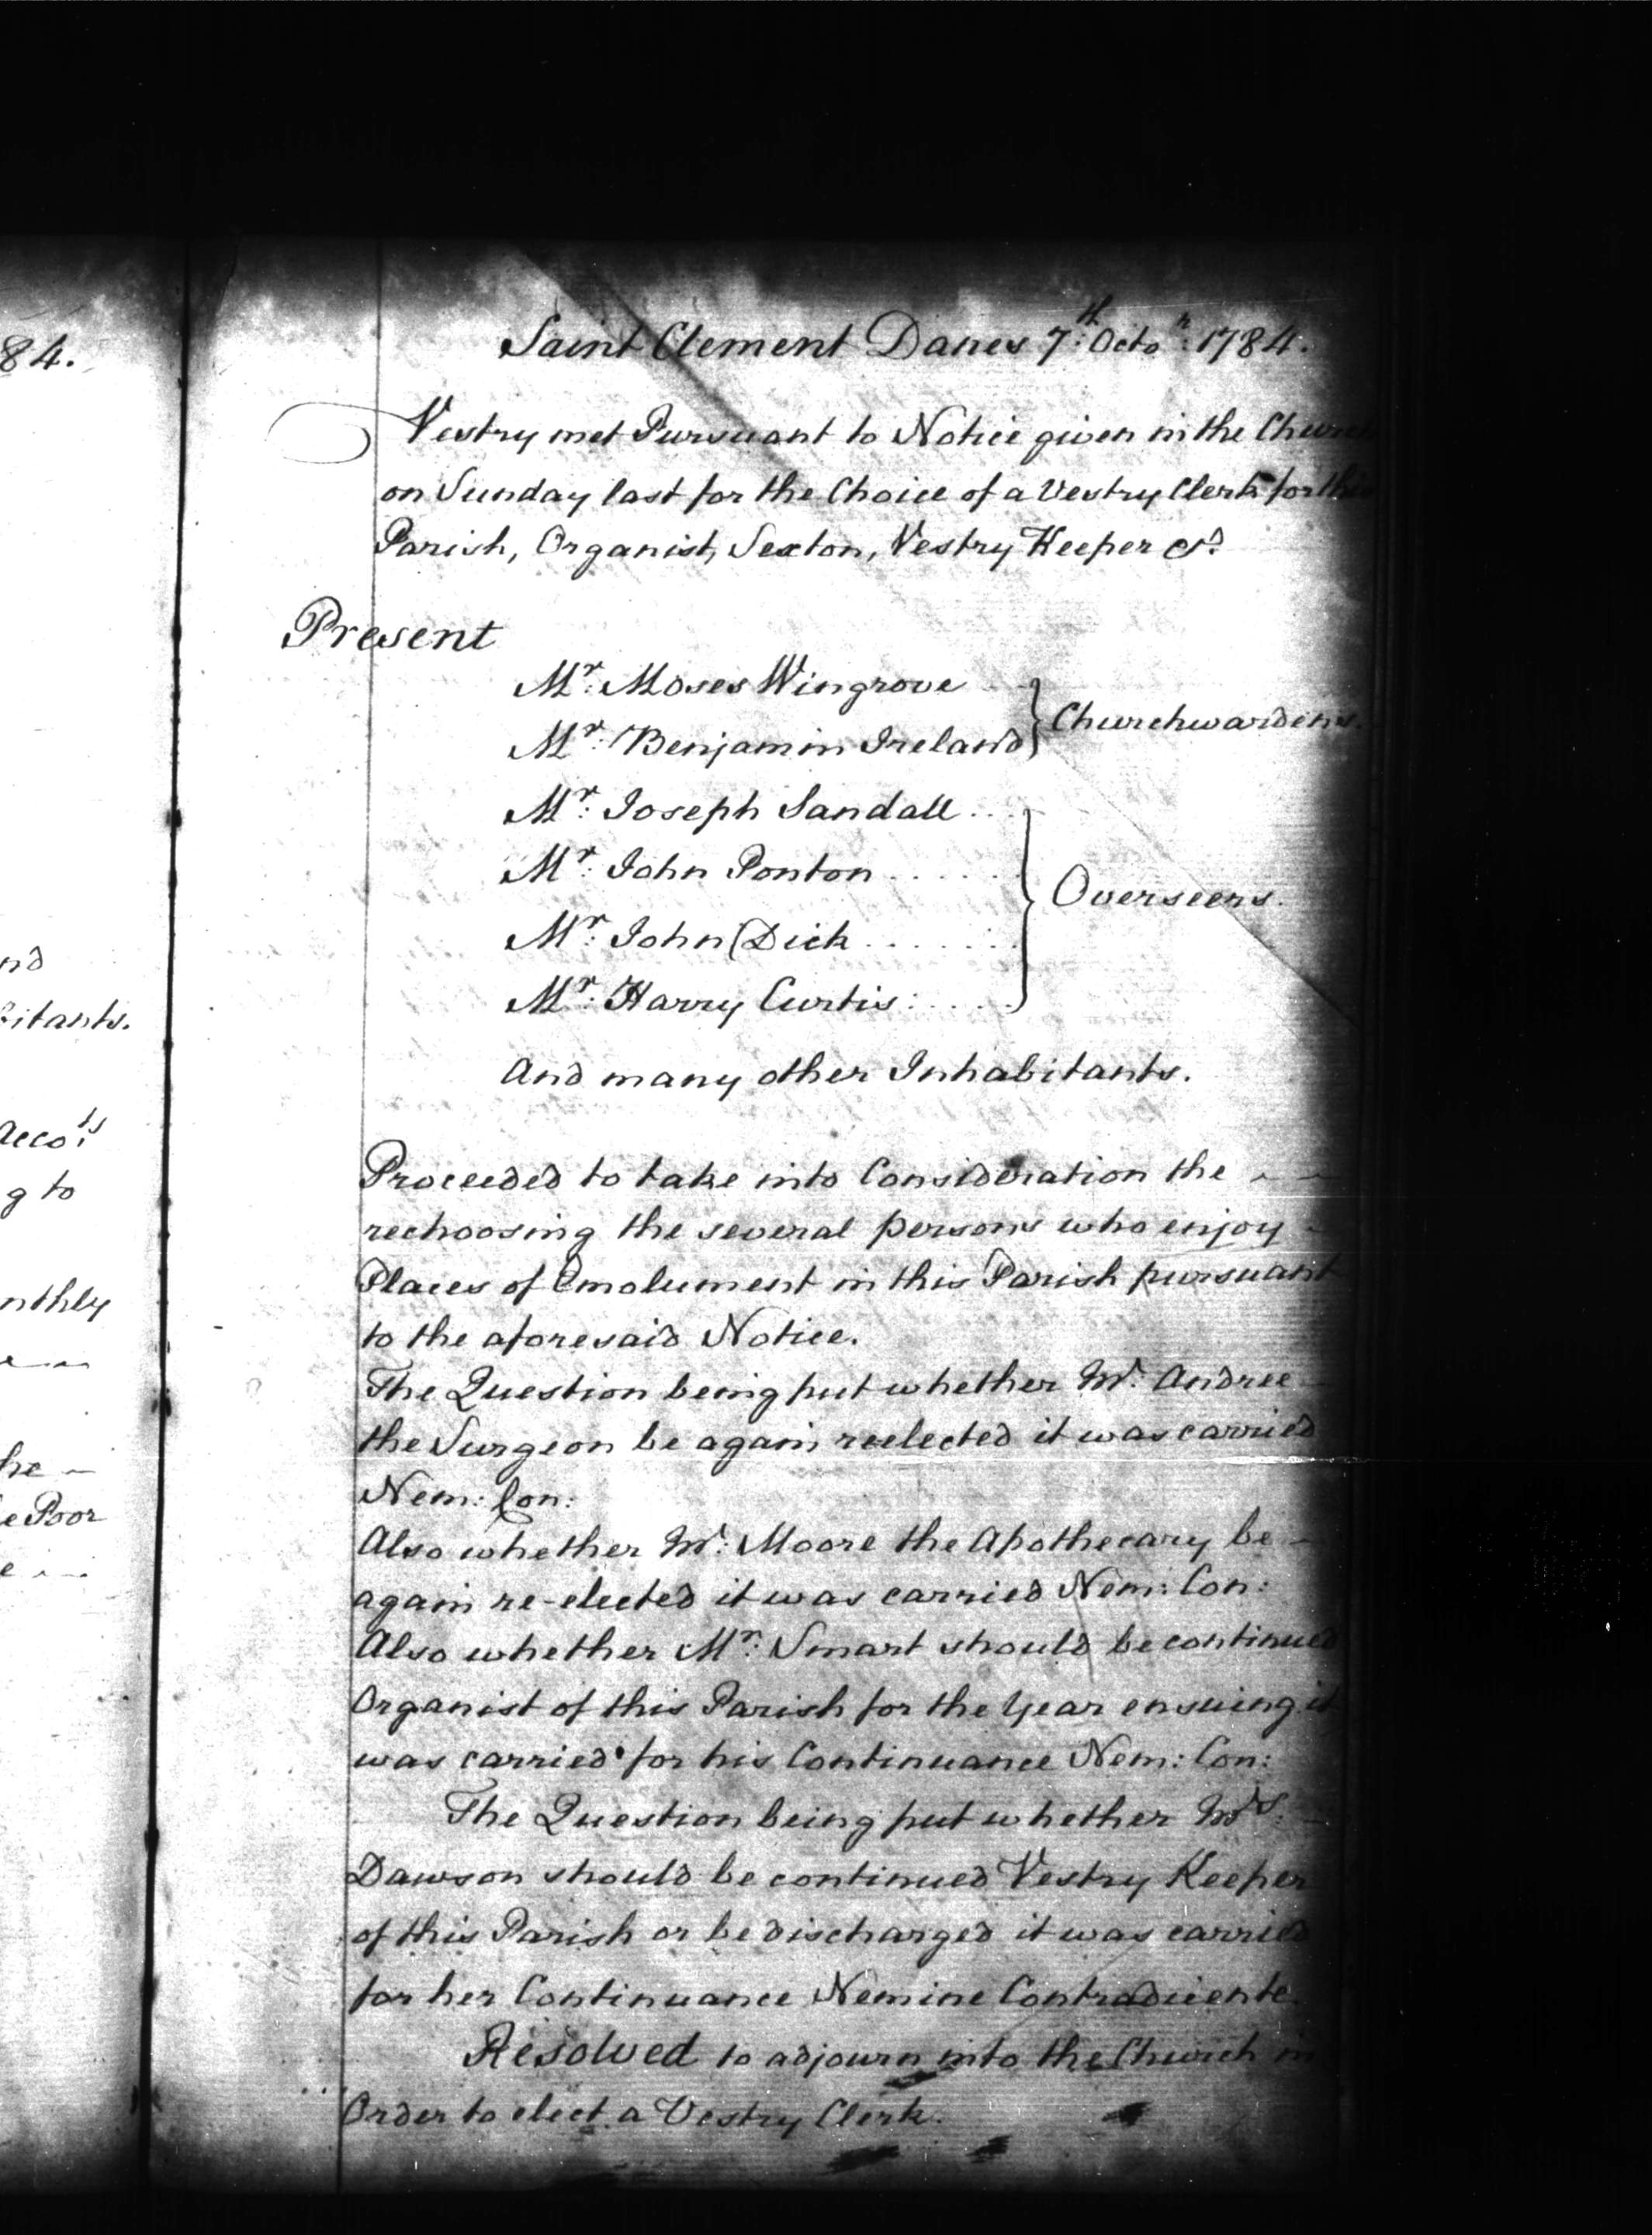 84.
nd
bitants.
Acco.ts
g to
nthly
he
e Poor
Saint Clement Danes 7.th Octo.r 1784.
Vestry met Pursuant to Notice given in the Church
on Sunday last for the Choice of a Vestry Clerk for this
Parish, Organist, Sexton, Vestry Keeper &c.
Present
Mr. Moses Wingrove
Churchwardens.
Mr. Benjamin Ireland
Mr. Joseph Sandall
Mr. John Ponton
Overseers.
Mr. John Dick
Mr. Harry Curtis
And many other Inhabitants.
Proceeded to take into Consideration the
rechoosing the several persons who enjoy
Places of Emolument in this Parish pursuant
to the aforesaid Notice.
The Question being put whether Mr. Andree
the Surgeon be again reelected it was carried
Nem: Con:
Also whether Mr. Moore the Apothecary be
again re-elected it was carried Nem: Con:
Also whether Mr. Smart should be continued
Organist of this Parish for the Year ensuing it
was carried for his Continuance Nem: Con:
The Question being put whether Mrs.
Dawson should be continued Vestry Keeper
of this Parish or be discharged it was carried
for her Continuance Nemine Contradicente.
Resolved to adjourn into the Church in
Order to elect a Vestry Clerk.